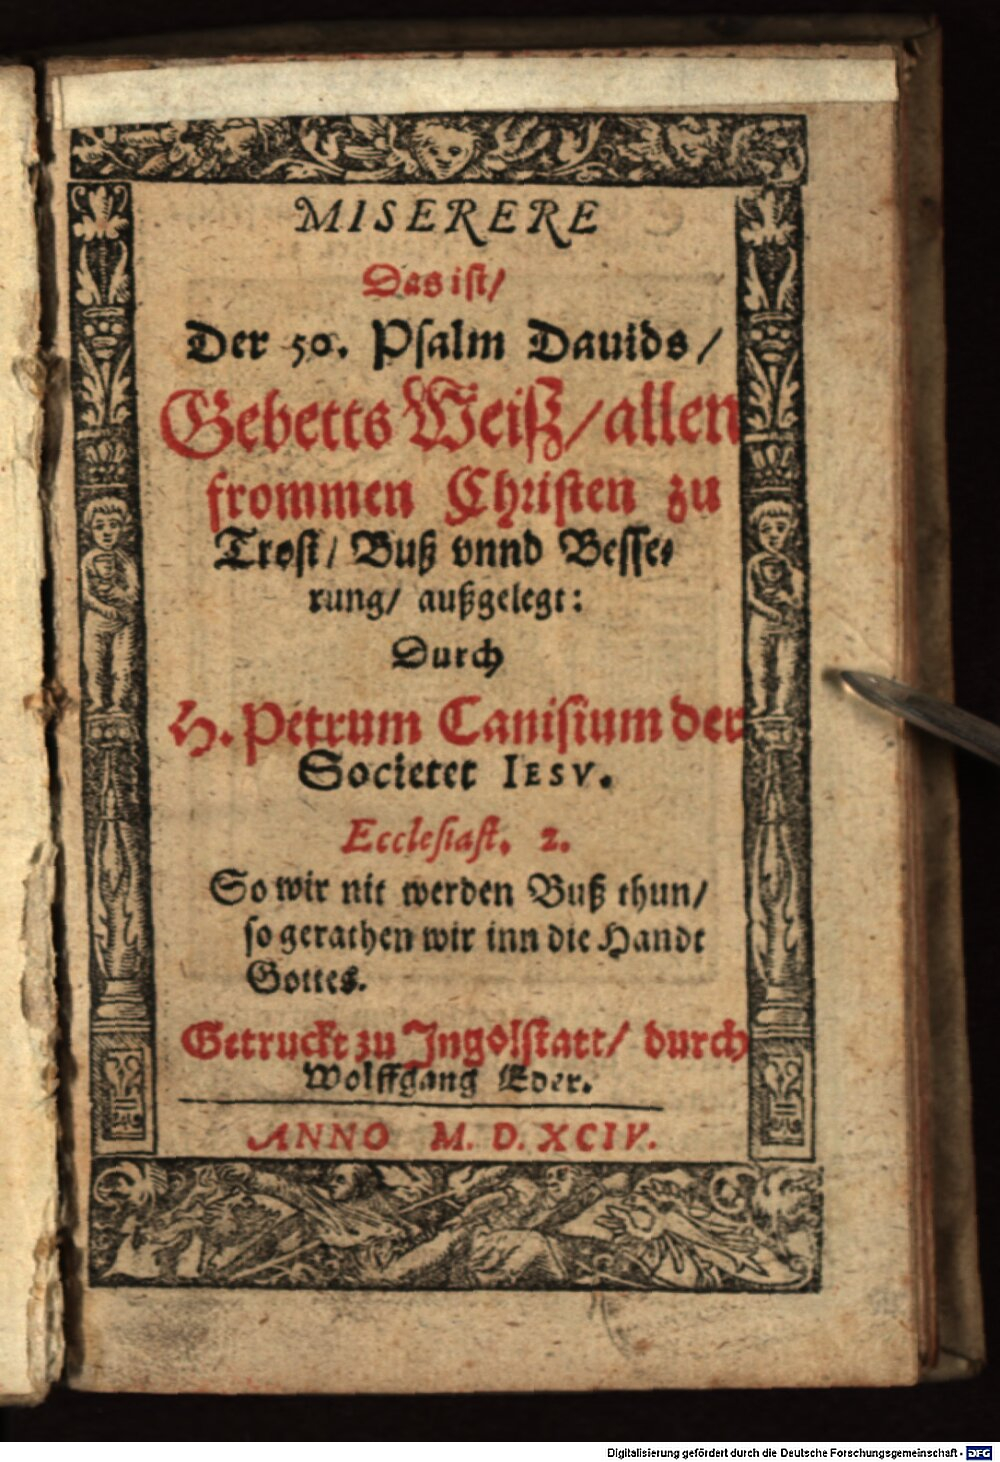 MISERERE
Das ist/
Der 50. Psalm Dauids/
Gebetts Weiß/ allen
frommen Christen zu
Trost/ Buß vnnd Besse-
rung/ außgelegt:
Durch
H. Petrum Canisium der
Societet IESV.
Ecclesiast. 2.
So wir nit werden Buß thun/
so gerathen wir inn die Handt
Gottes.
Getruckt zu Ingolstatt/ durch
Wolffgang Eder.
ANNO M. D. XCIV.
Digitalisierung gefördert durch die Deutsche Forschungsgemeinschaft - DFG